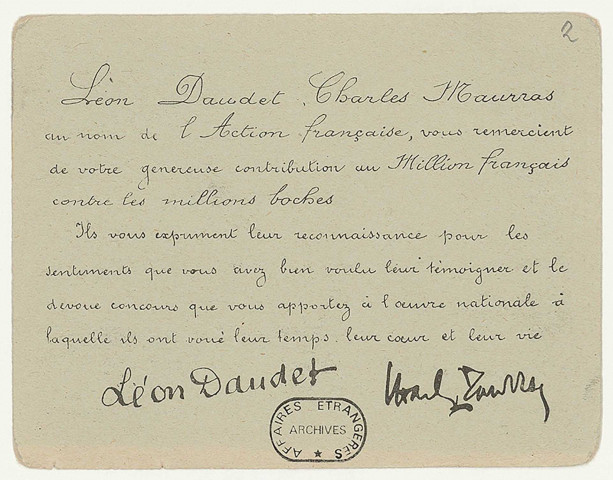 2
Léon Daudet, Charles Maurras
au nom de l'Action française, vous remercient
de votre genereuse contribution au Million français
contre les millions boches
Ils vous expriment leur reconnaissance pour les
sentiments que vous avez bien voulu leur témoigner et le
devoué concours que vous apportez à l'œuvre nationale à
laquelle ils ont voué leur temps, leur cœur et leur vie
Léon Daudet Charles Maurras
AFFAIRES ETRANGÈRES
ARCHIVES